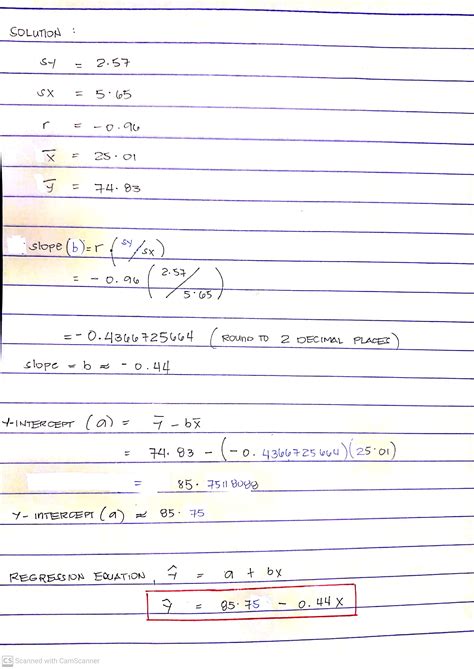 SOLUTION :
sy = 2.57
sx = 5.65
r = -0.96
x̅ = 25.01
y̅ = 74.83
slope (b) = r · (sy/sx)
= -0.96 (2.57/5.65)
= -0.4366725664 (ROUND TO 2 DECIMAL PLACES)
slope = b ≈ -0.44
Y-INTERCEPT (a) = y̅ - bx̅
= 74.83 - (-0.4366725664)(25.01)
= 85.75118088
Y-INTERCEPT (a) ≈ 85.75
REGRESSION EQUATION, ŷ = a + bx
ŷ = 85.75 - 0.44X
CS Scanned with CamScanner